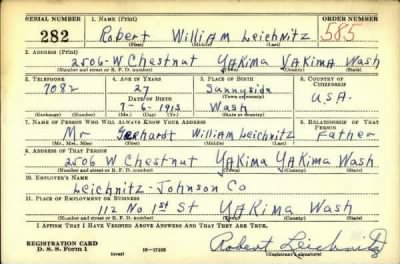 SERIAL NUMBER 1. NAME (Print) ORDER NUMBER
282 Robert William Leichnitz 585
(First) (Middle) (Last)
2. ADDRESS (Print)
2506-W Chestnut YAKIMA YAKIMA Wash
(Number and street or R. F. D. number) (Town) (County) (State)
3. TELEPHONE 4. AGE IN YEARS 5. PLACE OF BIRTH 6. COUNTRY OF CITIZENSHIP
7082 27 Sunnyside
DATE OF BIRTH (Town or county)
7-6-1913 Wash U.S.A.
(Exchange) (Number) (Mo.) (Day) (Yr.) (State or country)
7. NAME OF PERSON WHO WILL ALWAYS KNOW YOUR ADDRESS 8. RELATIONSHIP OF THAT PERSON
Mr Gerhardt William Leichnitz Father
(Mr., Mrs., Miss) (First) (Middle) (Last)
9. ADDRESS OF THAT PERSON
2506 W Chestnut YAKIMA YAKIMA Wash
(Number and street or R. F. D. number) (Town) (County) (State)
10. EMPLOYER'S NAME
Leichnitz-Johnson Co
11. PLACE OF EMPLOYMENT OR BUSINESS
112 No 1st St YAKIMA Wash
(Number and street or R. F. D. number) (Town) (County) (State)
I AFFIRM THAT I HAVE VERIFIED ABOVE ANSWERS AND THAT THEY ARE TRUE.
REGISTRATION CARD
D. S. S. Form 1 (over) Robert Leichnitz
(Registrant's signature)